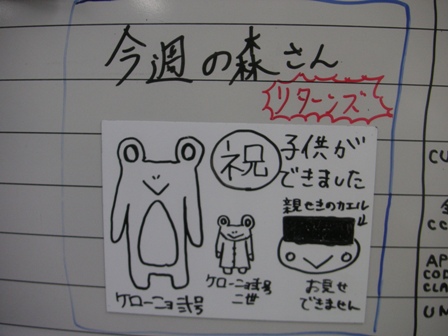 今週の森さん
リターンズ
祝
子供が
できました
親せきのカエル
ケローニョ弐号
ケローニョ弐号
二世
お見せ
できません
CU
CC
AP
COD
CLA